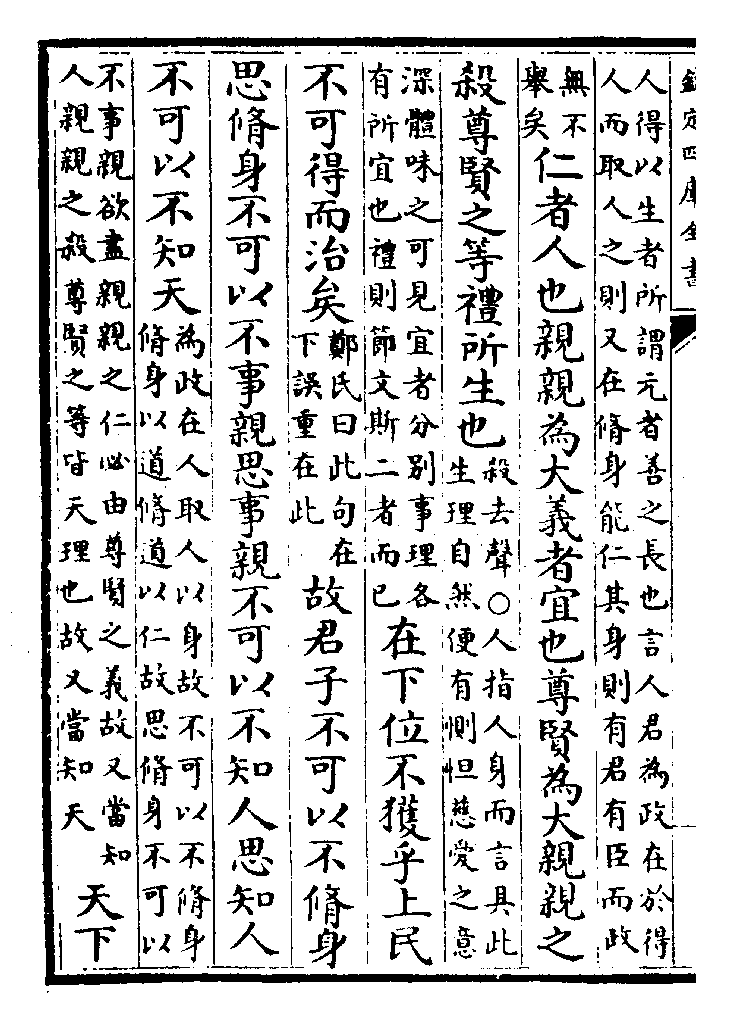 欽定四庫全書
人得以生者所謂元者善之長也言人君為政在於得
人而取人之則又在脩身能仁其身則有君有臣而政
無不
舉矣
仁者人也親親為大義者宜也尊賢為大親親之
殺尊賢之等禮所生也
殺去聲○人指人身而言具此
生理自然便有惻怛慈愛之意
深體味之可見宜者分别事理各
有所宜也禮則節文斯二者而已
在下位不獲乎上民
不可得而治矣
鄭氏曰此句在
下誤重在此
故君子不可以不脩身
思脩身不可以不事親思事親不可以不知人思知人
不可以不知天
為政在人取人以身故不可以不脩身
脩身以道脩道以仁故思脩身不可以
不事親欲盡親親之仁必由尊賢之義故又當知
人親親之殺尊賢之等皆天理也故又當知天
天下